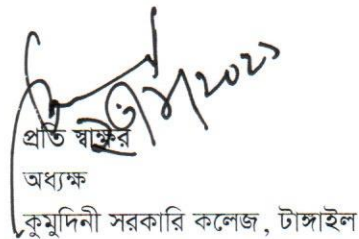 প্রতি স্বাক্ষর
অধ্যক্ষ
কুমুদিনী সরকারি কলেজ, টাঙ্গাইল